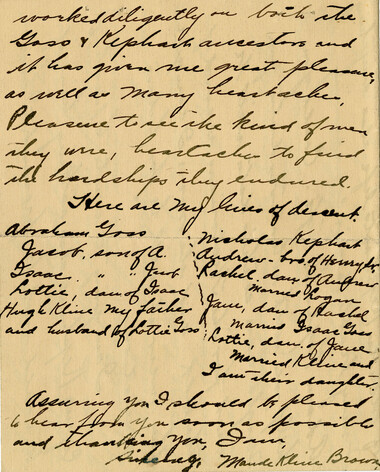 worked diligently on both the
Goss & Kephart ancestors and
it has given me great pleasure,
as well as many heartaches,
Pleasure to see the kind of men
they were, heartaches to find
the hardships they endured.
Here are my lines of descent.
Abraham Goss
Jacob, son of A.
Isaac. " " Jacob
Lottie, dau of Isaac
Hugh Kline my father
and husband of Lottie Goss
Nicholas Kephart
Andrew - bro. of Henry Sr.
Rachel, dau of Andrew
married Logan
Jane, dau of Rachel
Married Isaac Goss
Lottie, dau. of Jane
Married Kline and
I am their daughter.
Assuring you I should be pleased
to hear from you soon as possible
and thanking you, I am,
Sincerely,
Maude Kline Brown